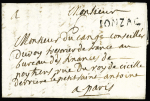 Monsieur
JONZAC
Monsieur Ducange conseiller
du Roy tresorier de france au
bureau des finances de
poitiers rue du roy de cicille
derriere le petit saint antoine
a paris